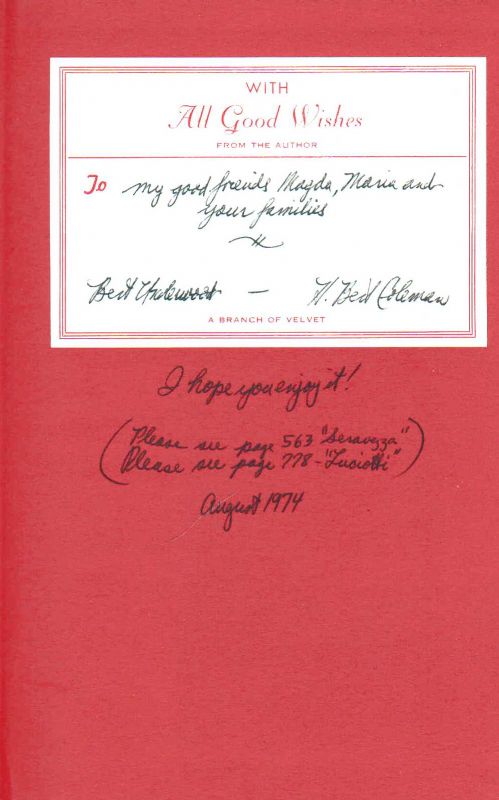 WITH
All Good Wishes
FROM THE AUTHOR
To my good friends Magda, Maria and
your families
Bert Underwood — H. Bert Coleman
A BRANCH OF VELVET
I hope you enjoy it!
(Please see page 563 "Seravezza"
Please see page 778-"Luciotti")
August 1974